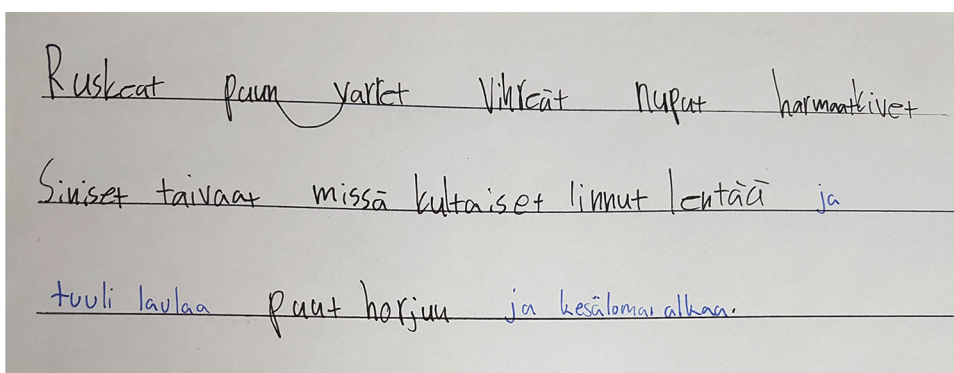 Ruskeat puun varret vihreät nuput harmaatkivet
Siniset taivaat missä kultaiset linnut lentää ja
tuuli laulaa puut horjuu ja kesäloma alkaa.